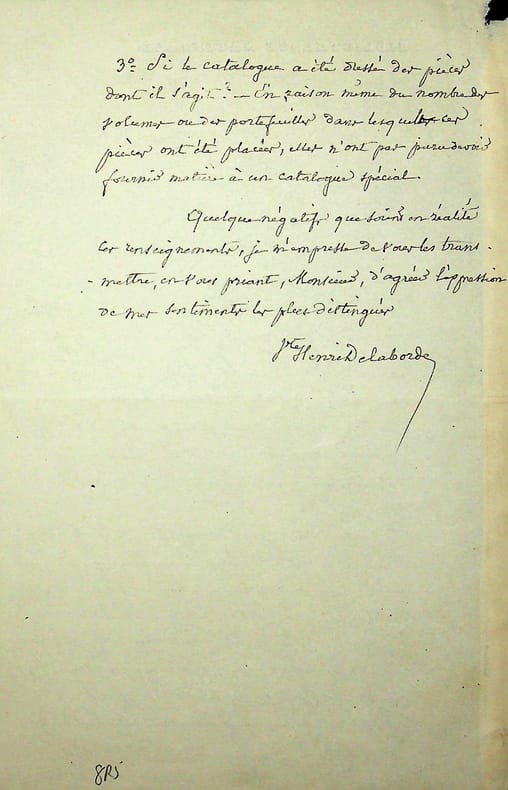 3º. Si le catalogue a été dressé des pièces
dont il s'agit? — En raison même du nombre des
volumes ou des portefeuilles dans lesquels ces
pièces ont été placées, elles n'ont pas pu devoir
fournir matière à un catalogue spécial.
Quelque négatifs que soient en réalité
ces renseignements, je m'empresse de vous les trans-
-mettre, en vous priant, Monsieur, d'agréer l'expression
de mes sentiments les plus distingués
Vte Henri Delaborde
8R5